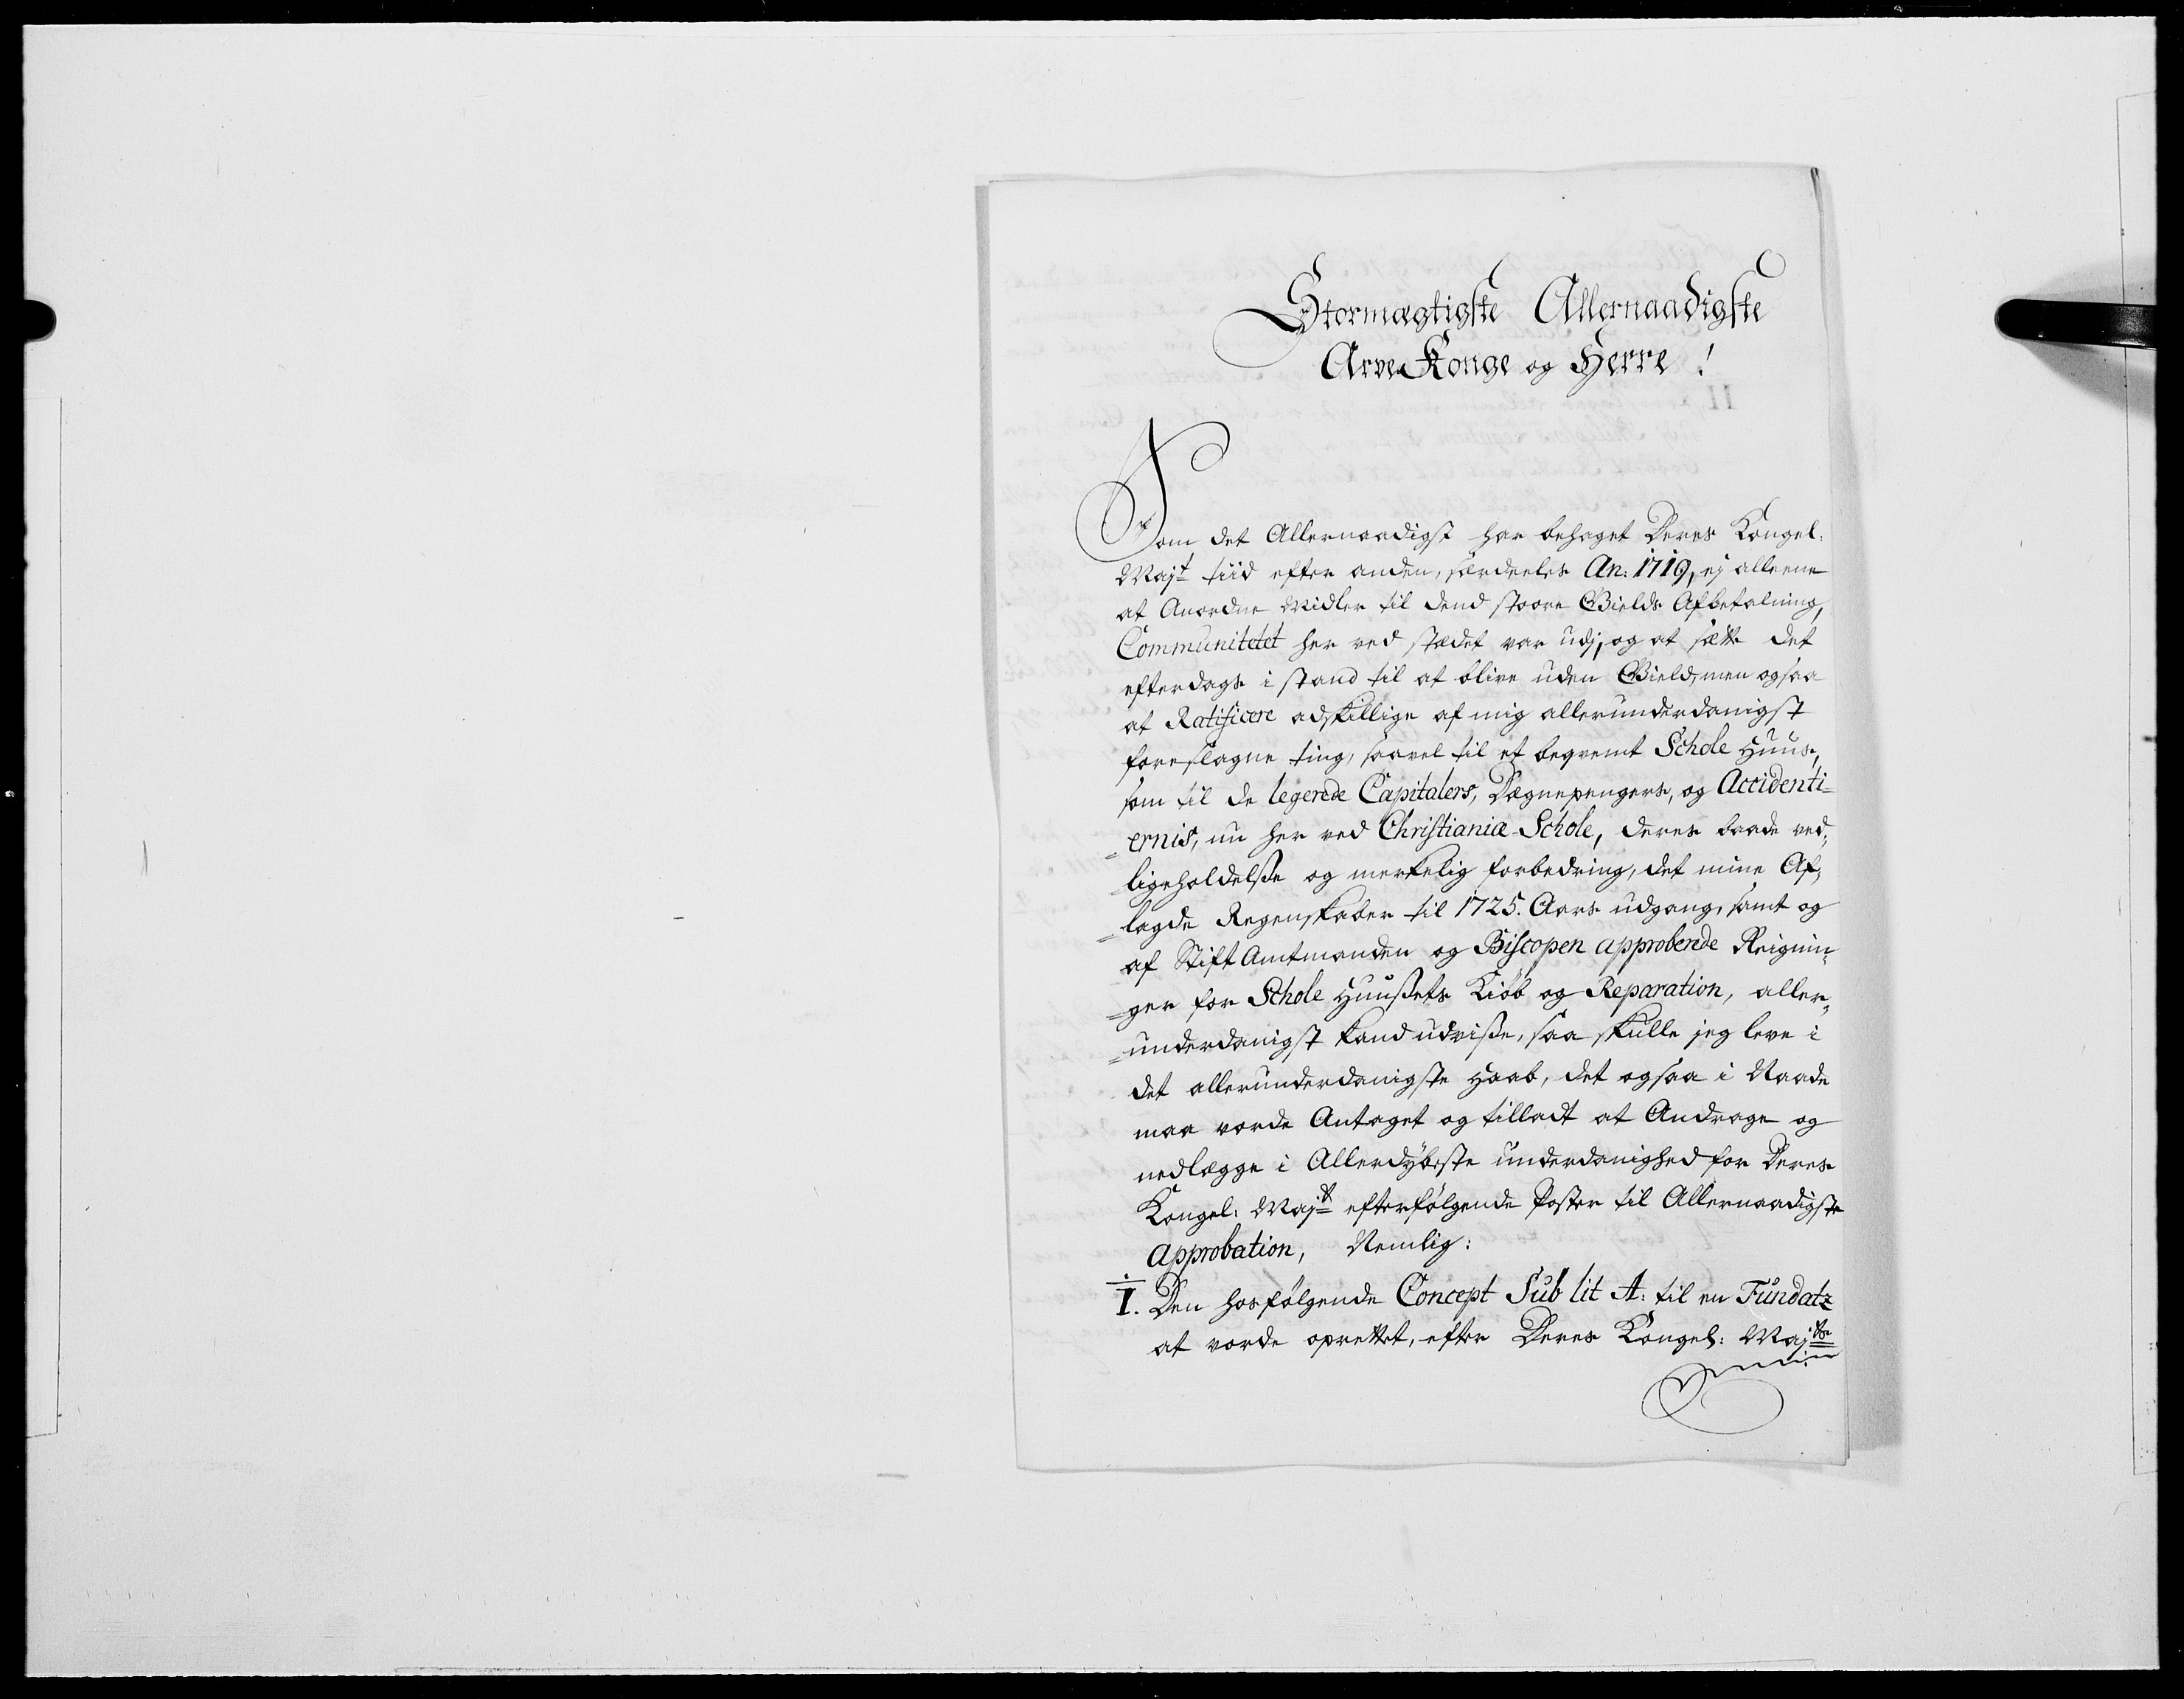 Stormægtigste Allernaadigste
Arve Konge og Herre!
Som det Allernaadigst har behaget Deres Kongel:
Majt tiid efter anden, særdeeles An: 1719, ej alleene
at Anordne Midler til dend stoore Gields Afbetalning,
Communitetet her ved stædet var udj, og at sætte det
efterdags i stand til at blive uden Gield, men ogsaa
at Ratificere adskillige af mig allerunderdanigst
foreslagne ting, saavel til et beqvemt Schole Huus,
som til de legerede Capitalers, Degnepengers, og Accidenti=
=ernis, nu her ved Christianiæ-Schole, deres baade ved=
ligeholdelse og merkelig forbedring, det mine Af=
=lagde Regenskaber til 1725. Aars udgang, samt og
af Stift Amtmanden og Biscopen approberede Reignin=
=ger for Schole Huusets Kiøb og Reparation, aller=
=underdanigst kand udvise, saa skulle jeg leve i
det allerunderdanigste Haab, det ogsaa i Naade
maa vorde Antaget og tilladt at Andrage og
nedlægge i Allerdybeste underdanighed for Deres
Kongel: Majt efterfølgende Poster til Allernaadigste
Approbation, Nemlig:
I. Den hosfølgende Concept Sub lit A: til en Fundatz
at vorde oprettet, efter Deres Kongel: Majts